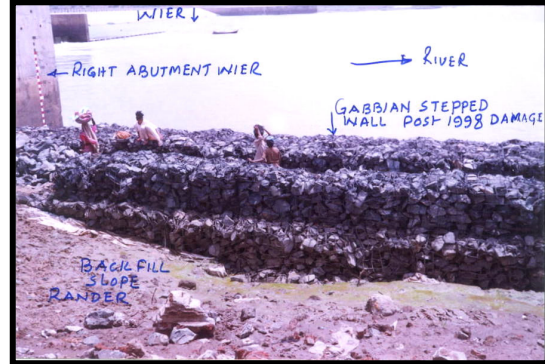 WIER ↓
→ RIVER
← RIGHT ABUTMENT WIER
GABBIAN STEPPED
WALL POST 1998 DAMAGE
BACKFILL
SLOPE
RANDER